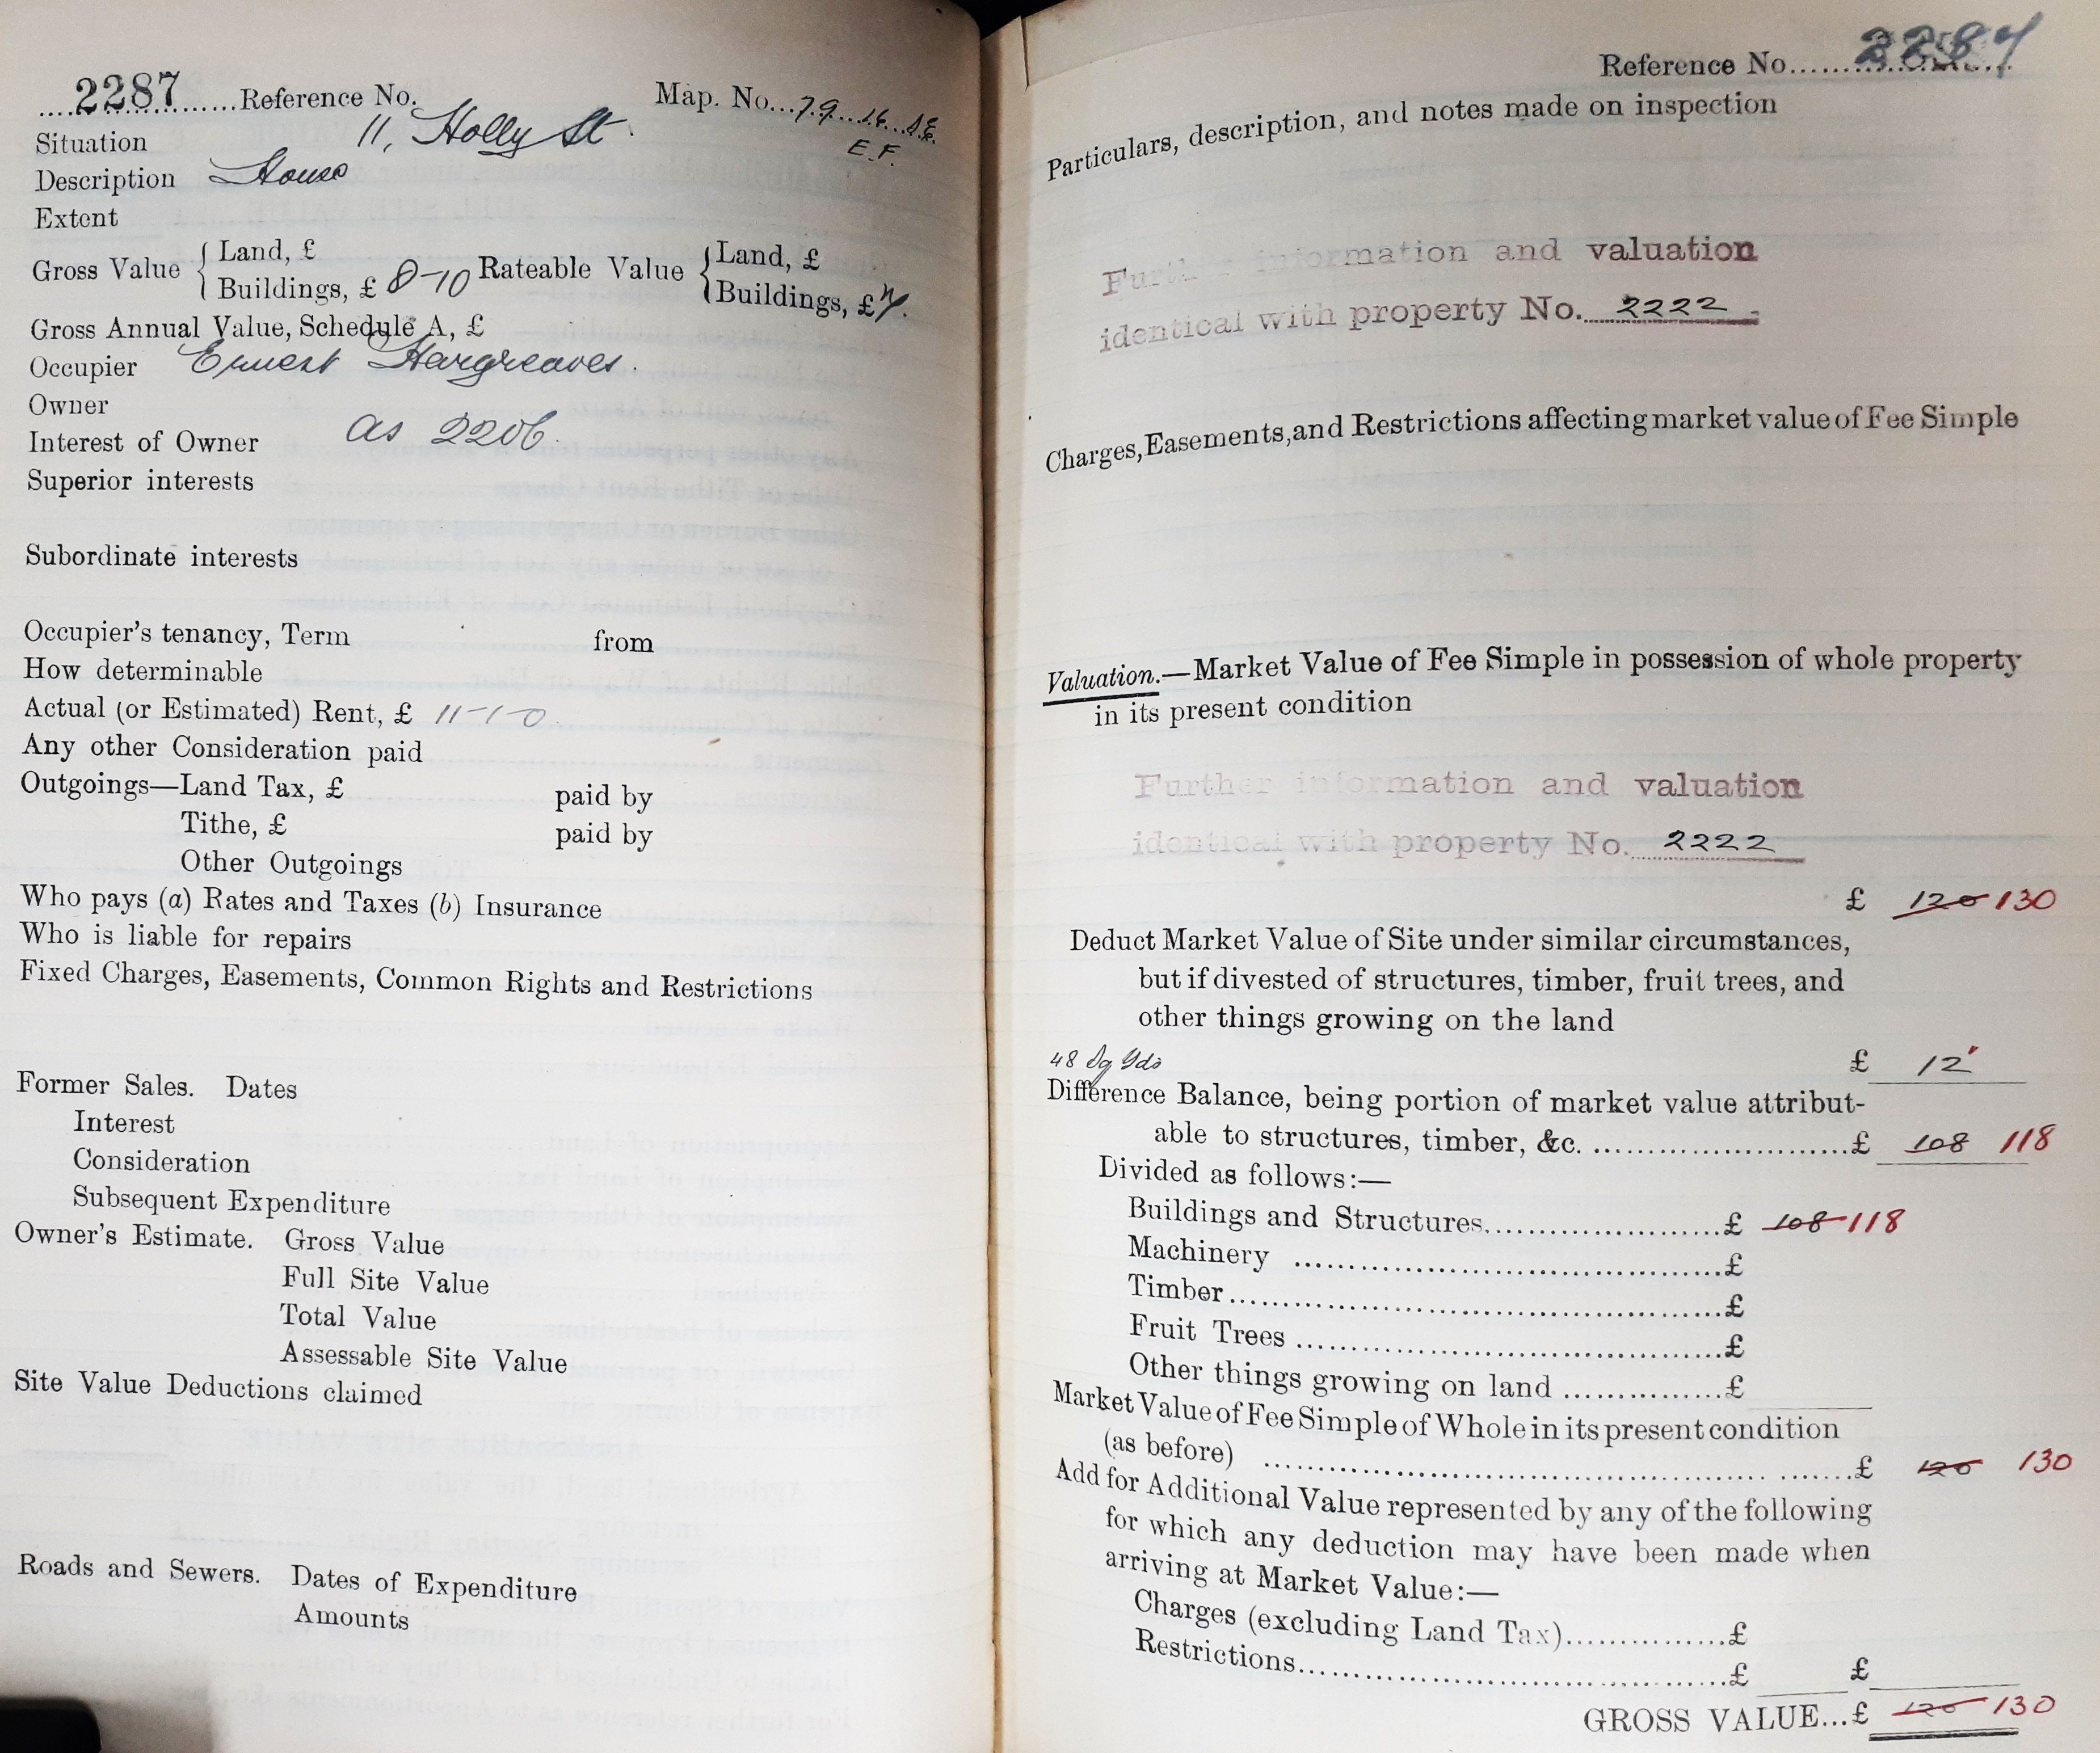 2287 Reference No. Map. No. 79.16.S.E.
E.F.
Situation 11, Holly St.
Description House
Extent
Gross Value { Land, £ Rateable Value { Land, £
Buildings, £ 8-10 Buildings, £
Gross Annual Value, Schedule A, £
Occupier Ernest Hargreaves.
Owner
Interest of Owner as 2206.
Superior interests
Subordinate interests
Occupier's tenancy, Term from
How determinable
Actual (or Estimated) Rent, £ 11-1-0.
Any other Consideration paid
Outgoings—Land Tax, £ paid by
Tithe, £ paid by
Other Outgoings
Who pays (a) Rates and Taxes (b) Insurance
Who is liable for repairs
Fixed Charges, Easements, Common Rights and Restrictions
Former Sales. Dates
Interest
Consideration
Subsequent Expenditure
Owner's Estimate. Gross Value
Full Site Value
Total Value
Assessable Site Value
Site Value Deductions claimed
Roads and Sewers. Dates of Expenditure
Amounts
Reference No.
Particulars, description, and notes made on inspection
Further information and valuation
identical with property No. 2222
Charges, Easements, and Restrictions affecting market value of Fee Simple
Valuation.—Market Value of Fee Simple in possession of whole property
in its present condition
Further information and valuation
identical with property No. 2222
£ 120 130
Deduct Market Value of Site under similar circumstances,
but if divested of structures, timber, fruit trees, and
other things growing on the land
48 Sq Yds £ 12
Difference Balance, being portion of market value attribut-
able to structures, timber, &c. £ 108 118
Divided as follows:—
Buildings and Structures £ 108 118
Machinery £
Timber £
Fruit Trees £
Other things growing on land £
Market Value of Fee Simple of Whole in its present condition
(as before) £ 120 130
Add for Additional Value represented by any of the following
for which any deduction may have been made when
arriving at Market Value:—
Charges (excluding Land Tax) £
Restrictions £ £
GROSS VALUE...£ 120 130